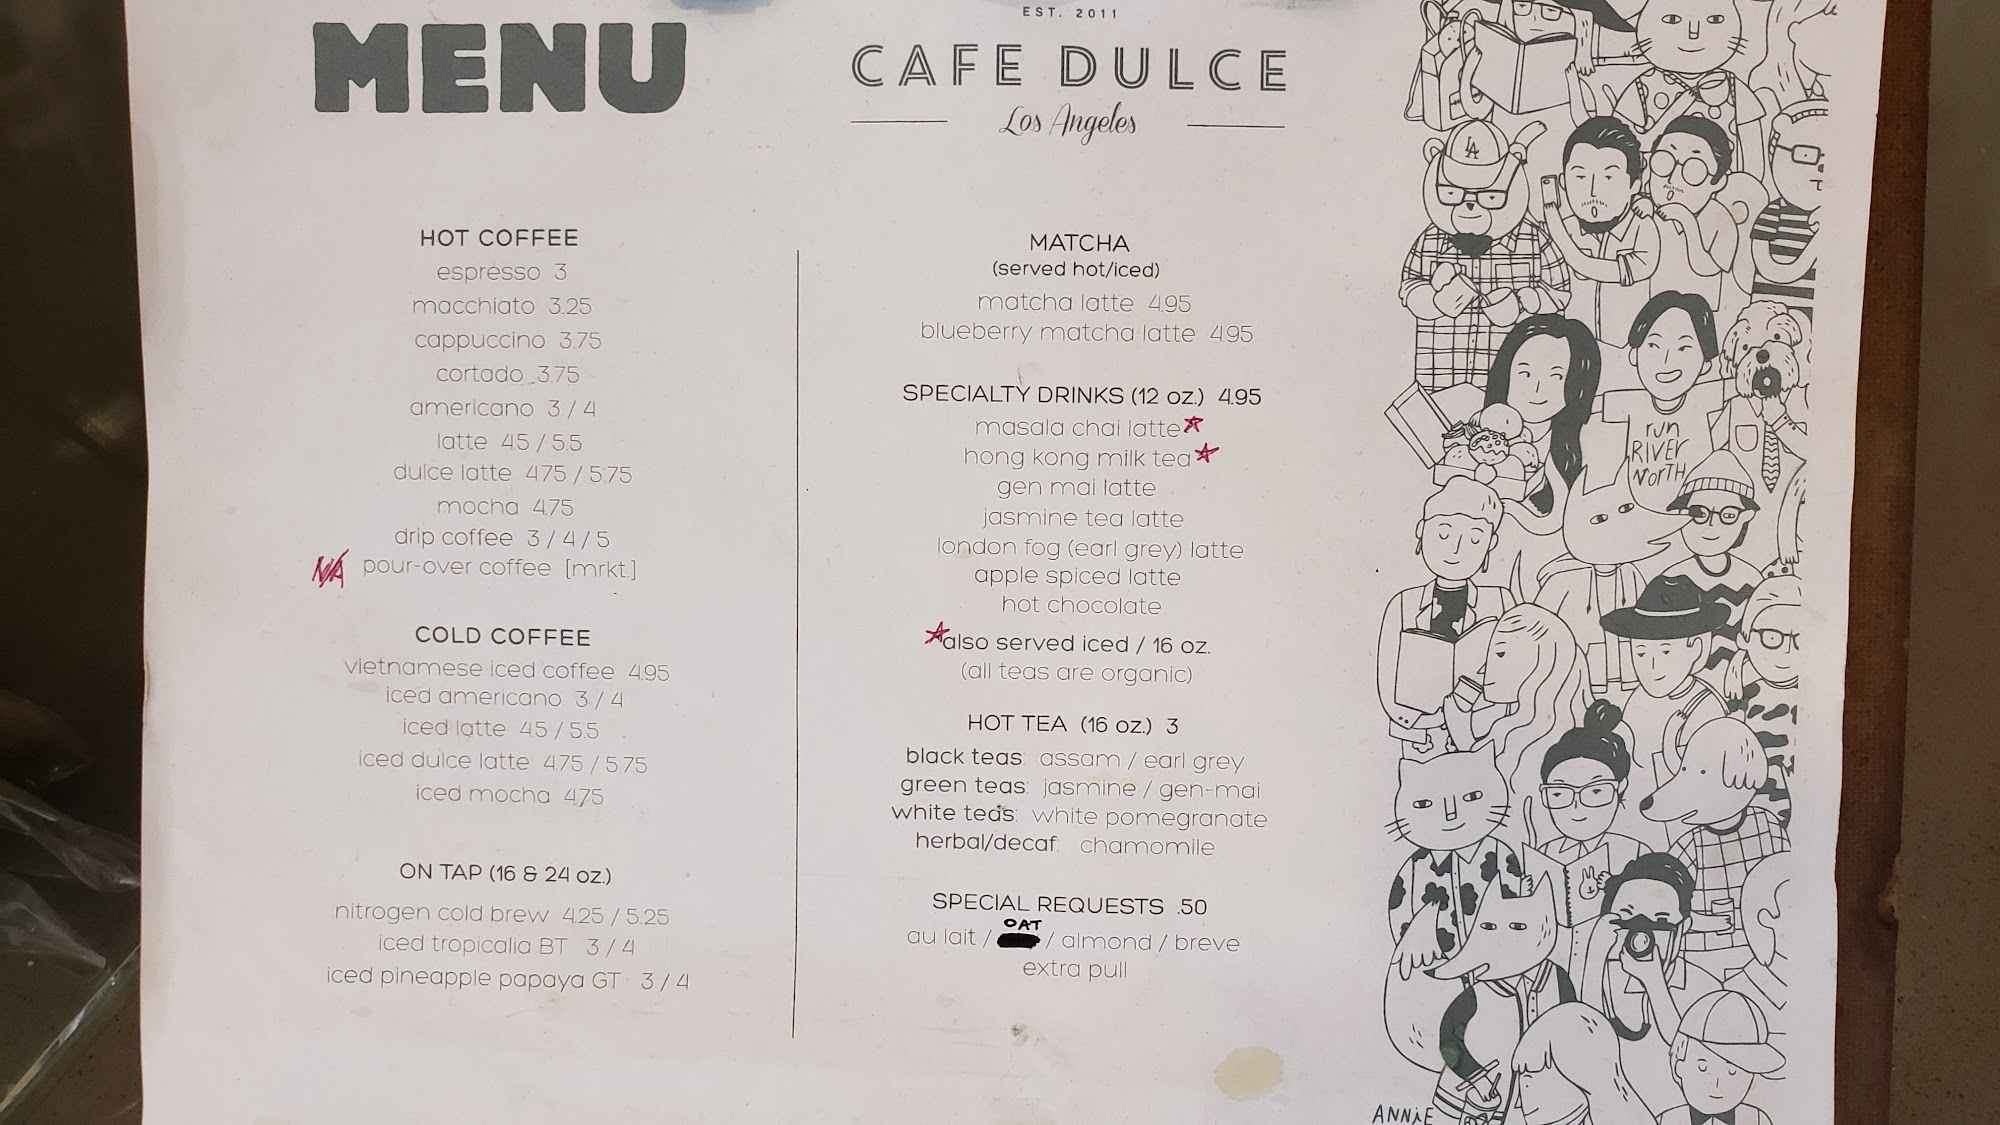 MENU
EST. 2011
CAFE DULCE
Los Angeles
HOT COFFEE
espresso 3
macchiato 3.25
cappuccino 3.75
cortado 3.75
americano 3 / 4
latte 4.5 / 5.5
dulce latte 4.75 / 5.75
mocha 4.75
drip coffee 3 / 4 / 5
N/A pour-over coffee [mrkt.]
COLD COFFEE
vietnamese iced coffee 4.95
iced americano 3 / 4
iced latte 4.5 / 5.5
iced dulce latte 4.75 / 5.75
iced mocha 4.75
ON TAP (16 & 24 oz.)
nitrogen cold brew 4.25 / 5.25
iced tropicalia BT 3 / 4
iced pineapple papaya GT 3 / 4
MATCHA
(served hot/iced)
matcha latte 4.95
blueberry matcha latte 4.95
SPECIALTY DRINKS (12 oz.) 4.95
masala chai latte☆
hong kong milk tea☆
gen mai latte
jasmine tea latte
london fog (earl grey) latte
apple spiced latte
hot chocolate
☆also served iced / 16 oz.
(all teas are organic)
HOT TEA (16 oz.) 3
black teas: assam / earl grey
green teas: jasmine / gen-mai
white teas: white pomegranate
herbal/decaf: chamomile
SPECIAL REQUESTS .50
OAT
au lait / / almond / breve
extra pull
LA
run
RIVER
NORTH
ANNiE